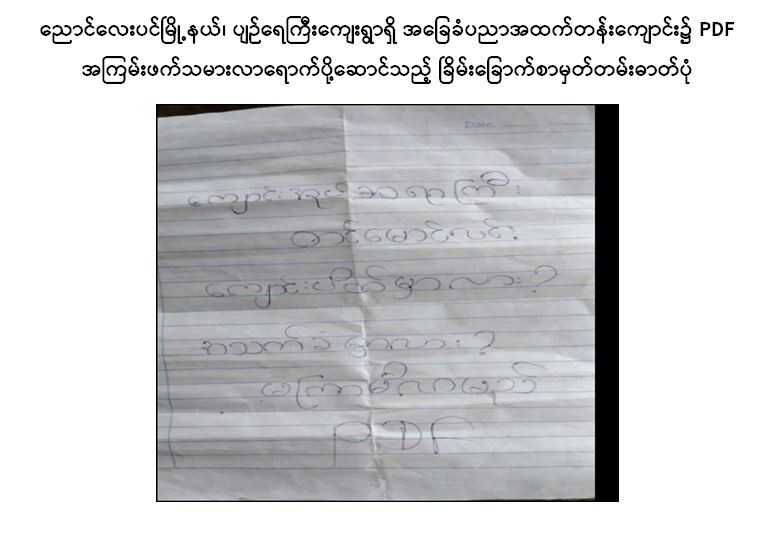 ညောင်လေးပင်မြို့နယ်၊ ပျဉ်ရေကြီးကျေးရွာရှိ အခြေခံပညာအထက်တန်းကျောင်း၌ PDF
အကြမ်းဖက်သမားလာရောက်ပို့ဆောင်သည့် ခြိမ်းခြောက်စာမှတ်တမ်းဓာတ်ပုံ
Date.
ကျောင်းအုပ်ဆရာကြီး
တင်မောင်လင်း
ကျောင်းပိတ်မှာလား?
အသက်ခံမှာလား?
မကြာမီလာမည်
PDF